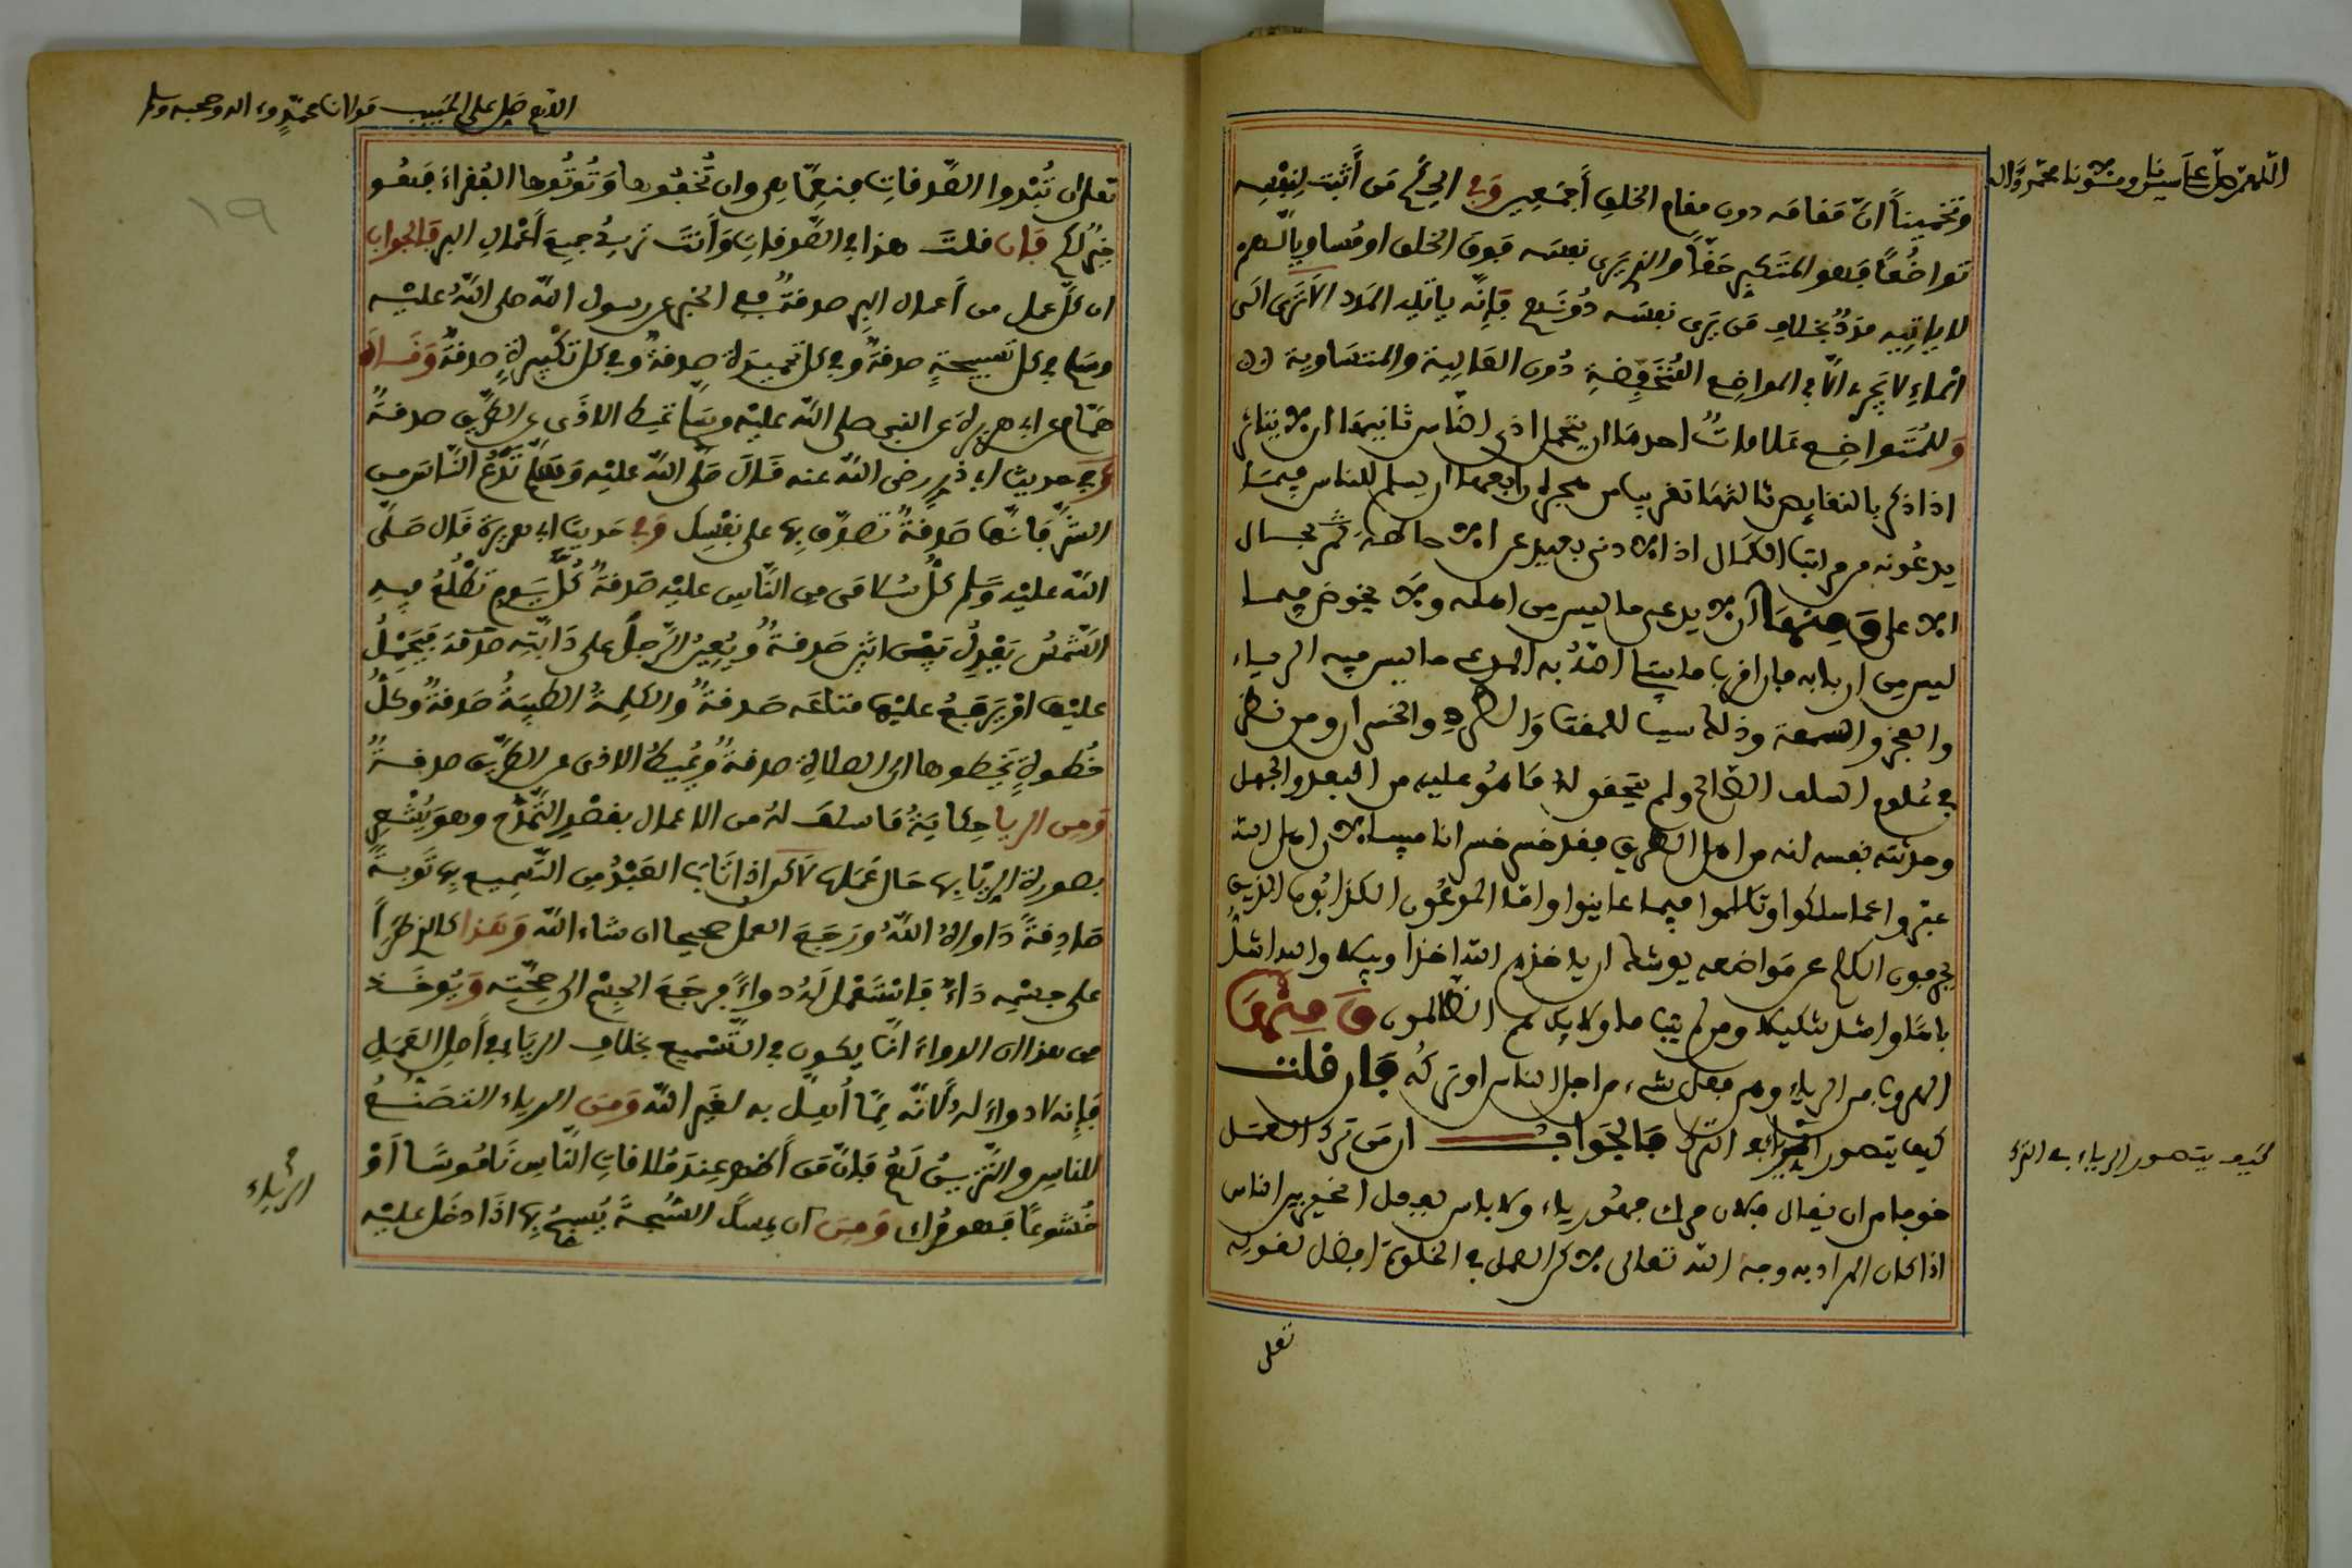 اللهم صل على سيدنا ومولانا محمد وآله
وتخمينا ان مقامه دون مقام الخلق أجمعين وفي الحكم من أثبت لنفسه
تواضعا فهو المتكبر حقا والذي يرى نفسه فوق الخلق او مساويا لهم
لا ياتيه مدد بخلاف من يرى نفسه دونهم فإنه ياتيه المدد الا ترى الى
الماء لا يجري الا في المواضع المنخفضة دون العالية والمتساوية
وللمتواضع علامات احدها ان يتحمل اذى الناس ثانيها ان لا يتاثر
اذا ذكر بالنقايص ثالثها رابعها ان يسلم للناس فيما
يدعونه من مراتب الكمال اذ الادنى بعيد عن الاحاطة بحال
الاعلى ومنها ان لا يدعي ما ليس من اهله ولا يخوض فيما
ليس من اربابه المدعي ما ليس فيه الرياء
والعجز والسمعة وذلك سببا للمقت والطرد والخسران ومن نظر
في علوم السلف الصالح ولم يتحقق له ما هو عليه من البعد والجهل
وحدثته نفسه انه من اهل الطريق فقد خسر خسرانا مبينا لان اهل الله
عبروا عما سلكوا وتكلموا فيما عاينوا واما المدعون الكذابون الذين
يحرفون الكلم عن مواضعه يوشك ان ياخذهم الله اخذا وبيلا والله اشد
باسا واشد تنكيلا ومن لم يتب الظالمون ومنها
الهروب من الرياء وهو فعل شيء من اجل الناس او تركه فان قلت
كيف يتصور الرياء في الترك فالجواب ان من ترك العمل
خوفا من ان يقال فلان مراء فهو رياء ولا باس بفعل الخير بين الناس
اذا كان المراد به وجه الله تعالى لاكن العمل في الخلوة افضل لقوله
تعلى
كيف يتصور الرياء في الترك
اللهم صل على الحبيب مولانا محمد وءاله وصحبه وسلم
١٩
تعلى ان تبدوا الصدقات فنعما هي وان تخفوها وتوتوها الفقراء فهو
خير لكم فإن قلت هذا في الصدقات وأنت تريد جميع أعمال البر فالجواب
ان كل عمل من أعمال البر صدقة ففي الخبر عن رسول الله صلى الله عليه
وسلم في كل تسبيحة صدقة وفي كل تحميدة صدقة وفي كل تكبيرة صدقة وقال
همام عن ابي هريرة عن النبي صلى الله عليه وسلم تميط الاذى عن الطريق صدقة
وفي حديث ابي ذر رضي الله عنه قال صلى الله عليه وسلم تدع الناس من
الشر فإنها صدقة تصدق بها على نفسك وفي حديث ابي هريرة قال صلى
الله عليه وسلم كل سلامى من الناس عليه صدقة كل يوم تطلع فيه
الشمس يعدل بين اثنين صدقة ويعين الرجل على دابته صدقة فيحمل
عليها او يرفع عليها متاعه صدقة والكلمة الطيبة صدقة وكل
خطوة يخطوها الى الصلاة صدقة ويميط الاذى عن الطريق صدقة
ومن الريا حكاية ما سلف له من الاعمال بقصد التمدح وهو يشبه
بصورة الريا بها حال عملها لاكن اذا تاب العبد من التسميع بها توبة
صادقة داواه الله ورجع العمل صحيحا ان شاء الله وهذا كالذي طرأ
على جسمه داء فاستعمل له دواء فرجع الجسم الى صحته ويوخذ
من هذا ان الدواء انما يكون في التسميع بخلاف الرياء في أصل العمل
فإنه لا دواء له لانه مما أهل به لغير الله ومن الرياء التصنع
للناس والتزين لهم فإن من أظهر عند ملاقات الناس ناموسا أو
خشوعا فهو مراء ومن ان يمسك السبحة يسبح بها اذا دخل عليه
الرياء